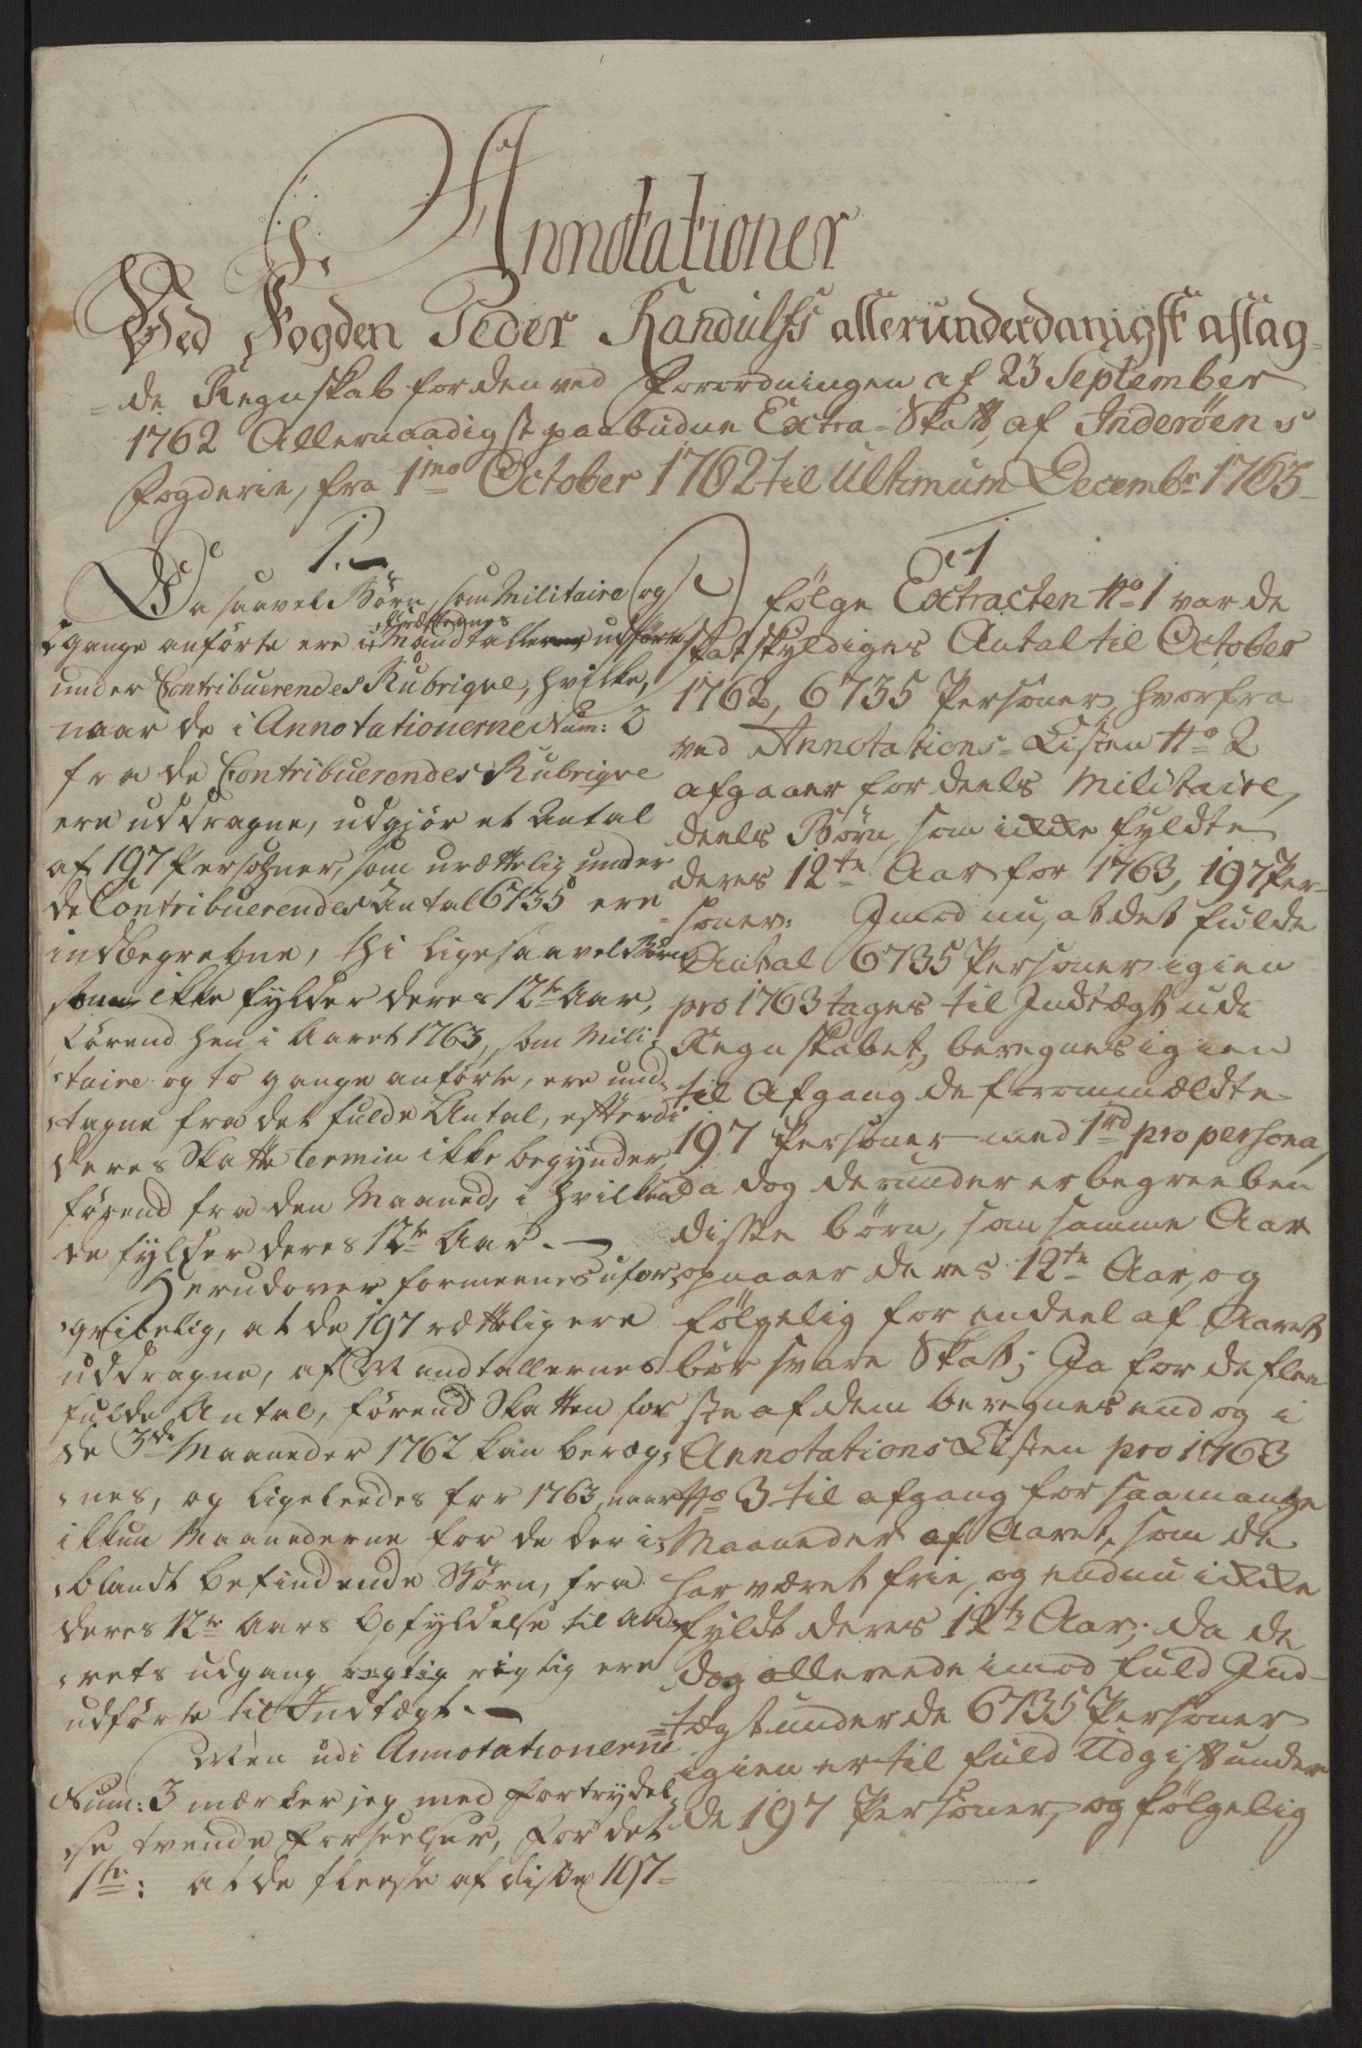 Annotationer
Ved Fogden Peder Randulfs allerunderdanigst aflag-
-de Regnskab for den ved Forordningen af 23 September
1762 Allernaadigst paabudne Extra-Skatt, af Inderøens
Fogderie, fra 1mo October 1762 til Ultimum Decembr 1763
1.
Da saavel Børn, som Militaire og
2 gange anførte ere i Mandtallerne udførte
under Contribuerendes Rubriqve, hvilke,
naar de i Annotationerne Num: 2
fra de Contribuerendes Rubriqve
ere uddragne, udgjør et Antal
af 197 Persohner, som urættelig under
de Contribuerendes Antal 6735 ere
indbegrebne, thi ligesaavel Børn
som ikke fylder deres 12te Aar,
førend hen i Aaret 1763, som Mili-
taire og to gange anførte, ere und-
tagne fra det fulde Antal, efterdi
deres Skatte Termin ikke begynder
førend fra den Maaned, i hvilken
de fylder deres 12te Aar.
Herudover formeenes ufor-
gribelig, at de 197 rættelig ere
uddragne, af Mandtallernes
fulde Antal, førend Skatten for
de 3de Maaneder 1762 kan bereg-
nes, og ligeleedes for 1763, naar
ikkun Maanederne for de der i-
blandt befindende Børn, fra
deres 12te Aars Opfyldelse til Aa-
rets udgang rigtig ere
udførte til Indtægt.
Men udi Annotationerne
Num: 3 mærker jeg med Fortrydel-
se tvende Forseelser, for det
1te: at de fleeste af disse 197
1
Ifølge Extracten No 1 var de
skatskyldiges Antal til October
1762, 6735 Personer, hvorfra
ved Annotations-Listen No 2
afgaaer for deels Militaire,
deels Børn, som ikke fyldte
deres 12te Aar for 1763, 197 Per-
soner: Imod nu, at det fulde
Antal 6735 Personer igien
pro 1763 tages til Indtægt udi
Regnskabet, beregnes igien
til Afgang de frommældte
197 Personer med 1 rd pro persona,
da dog derunder er begreeben
disse børn, som samme Aar
opnaaer deres 12te Aar, og
følgelig for endeel af Aaret
bør svare Skatt; Ja for de flee-
ste af dem beregnes endog i
Annotations Listen pro 1763
No 3 til afgang for saa mange
Maaneder af Aaret, som de
har været frie, og endnu ikke
fyldt deres 12te Aar; da de
dog allerede imod fuld Ind-
tægt under de 6735 Personer
igien er til fuld Udgift under
de 197 Personer, og følgelig